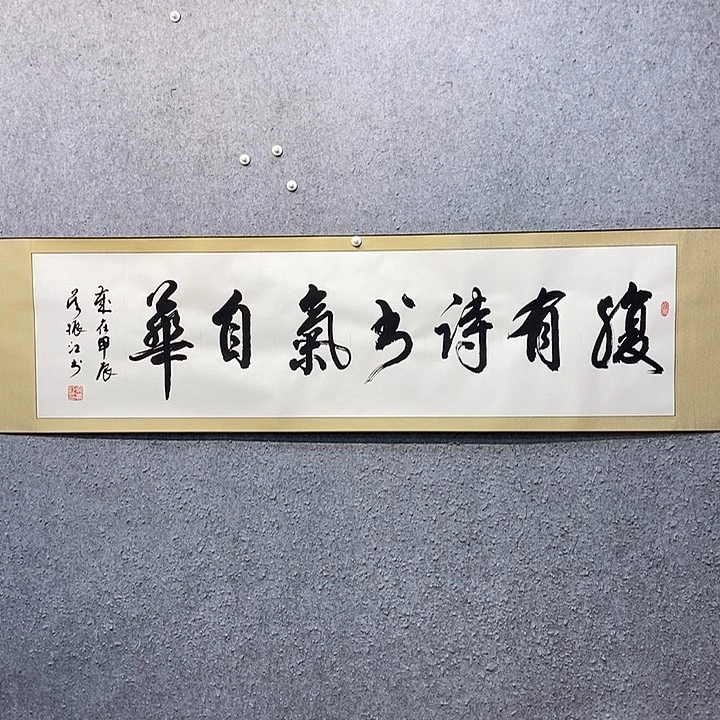 腹有诗书氣自華
歲在甲辰
振江书